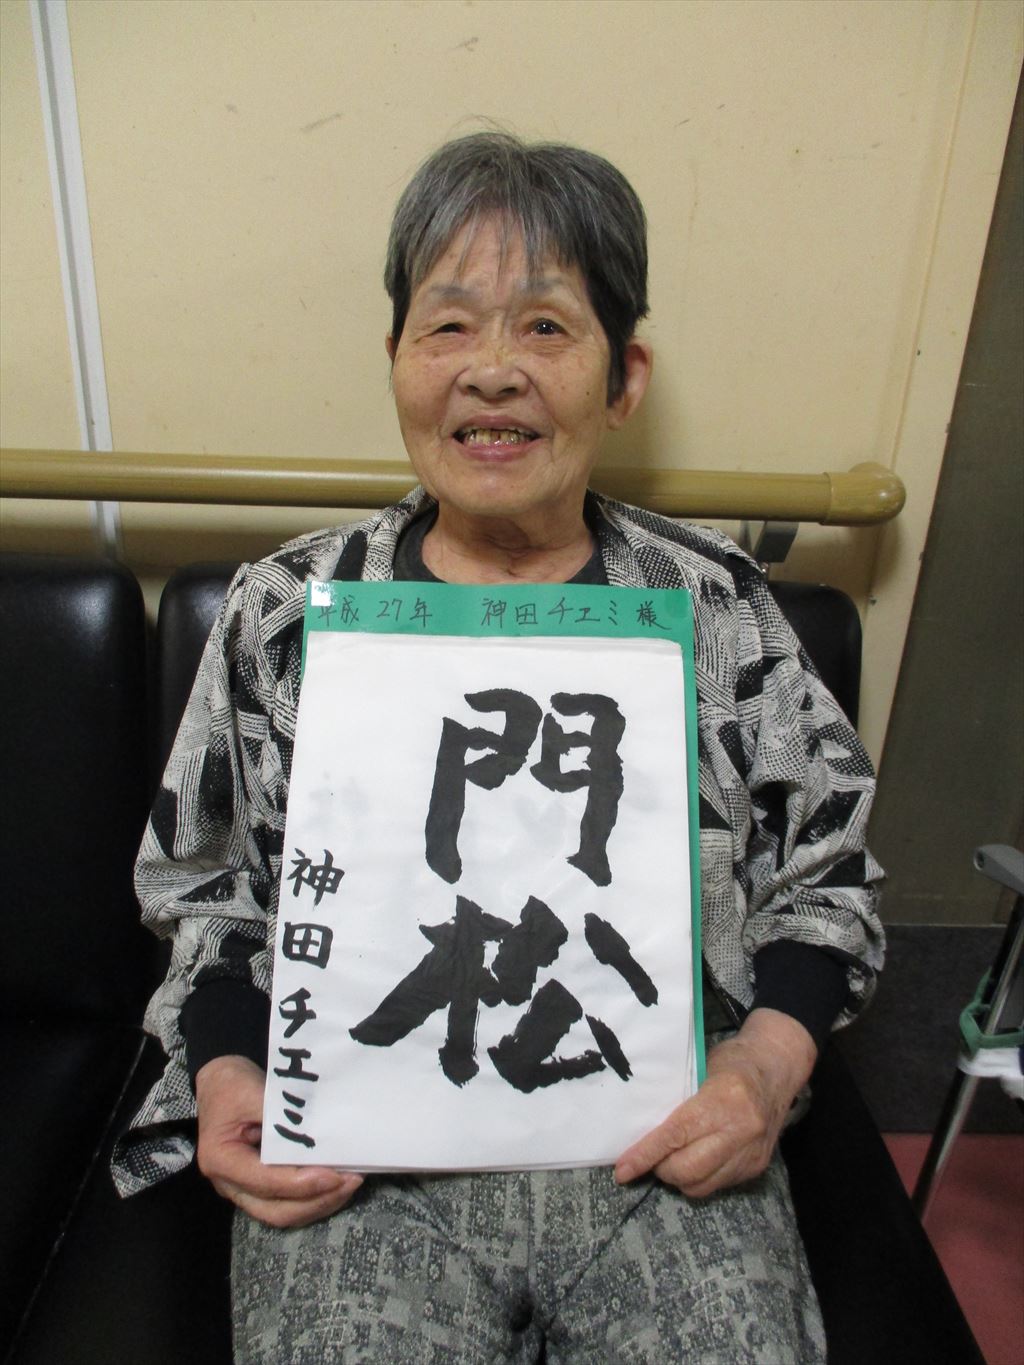 平成27年 神田チエミ様
門松
神田チエミ